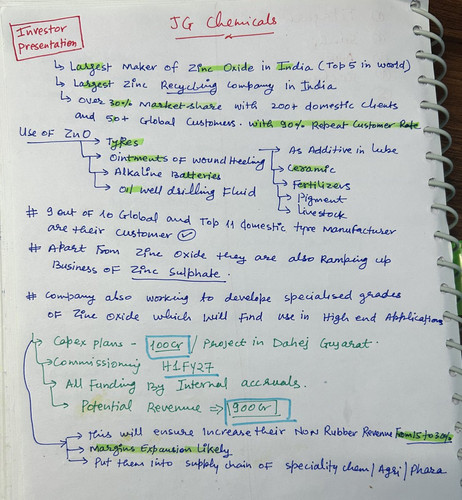 JG Chemicals
Investor
Presentation
↳ Largest Maker of Zinc Oxide in India (Top 5 in world)
↳ Largest Zinc Recycling Company in India
↳ Over 30% Market share with 200+ domestic clients
and 50+ Global Customers. with 90% Repeat Customer Rate
Use of ZnO
→ Tyres
→ Ointments of wound Heeling
→ Alkaline Batteries
→ Oil well drilling Fluid
→ As Additive in Lube
→ Ceramic
→ Fertilizers
→ Pigment
→ Livestock
# 9 out of 10 Global and Top 11 domestic tyre Manufacturer
are their Customer ✓
# Apart From Zinc Oxide they are also Ramping up
Business of Zinc Sulphate.
# Company also working to develope specialised grades
of Zinc Oxide which will find use in High end Applications
→ Capex plans - 100Cr / Project in Dahej Gujarat.
→ Commissioning H1FY27
→ All Funding By Internal accruals.
→ Potential Revenue ⇒ 900Cr
→ This will ensure Increase their Non Rubber Revenue From 15 to 30%
→ Margins Expansion Likely
→ Put them into supply chain of speciality chem/Agri/Phara